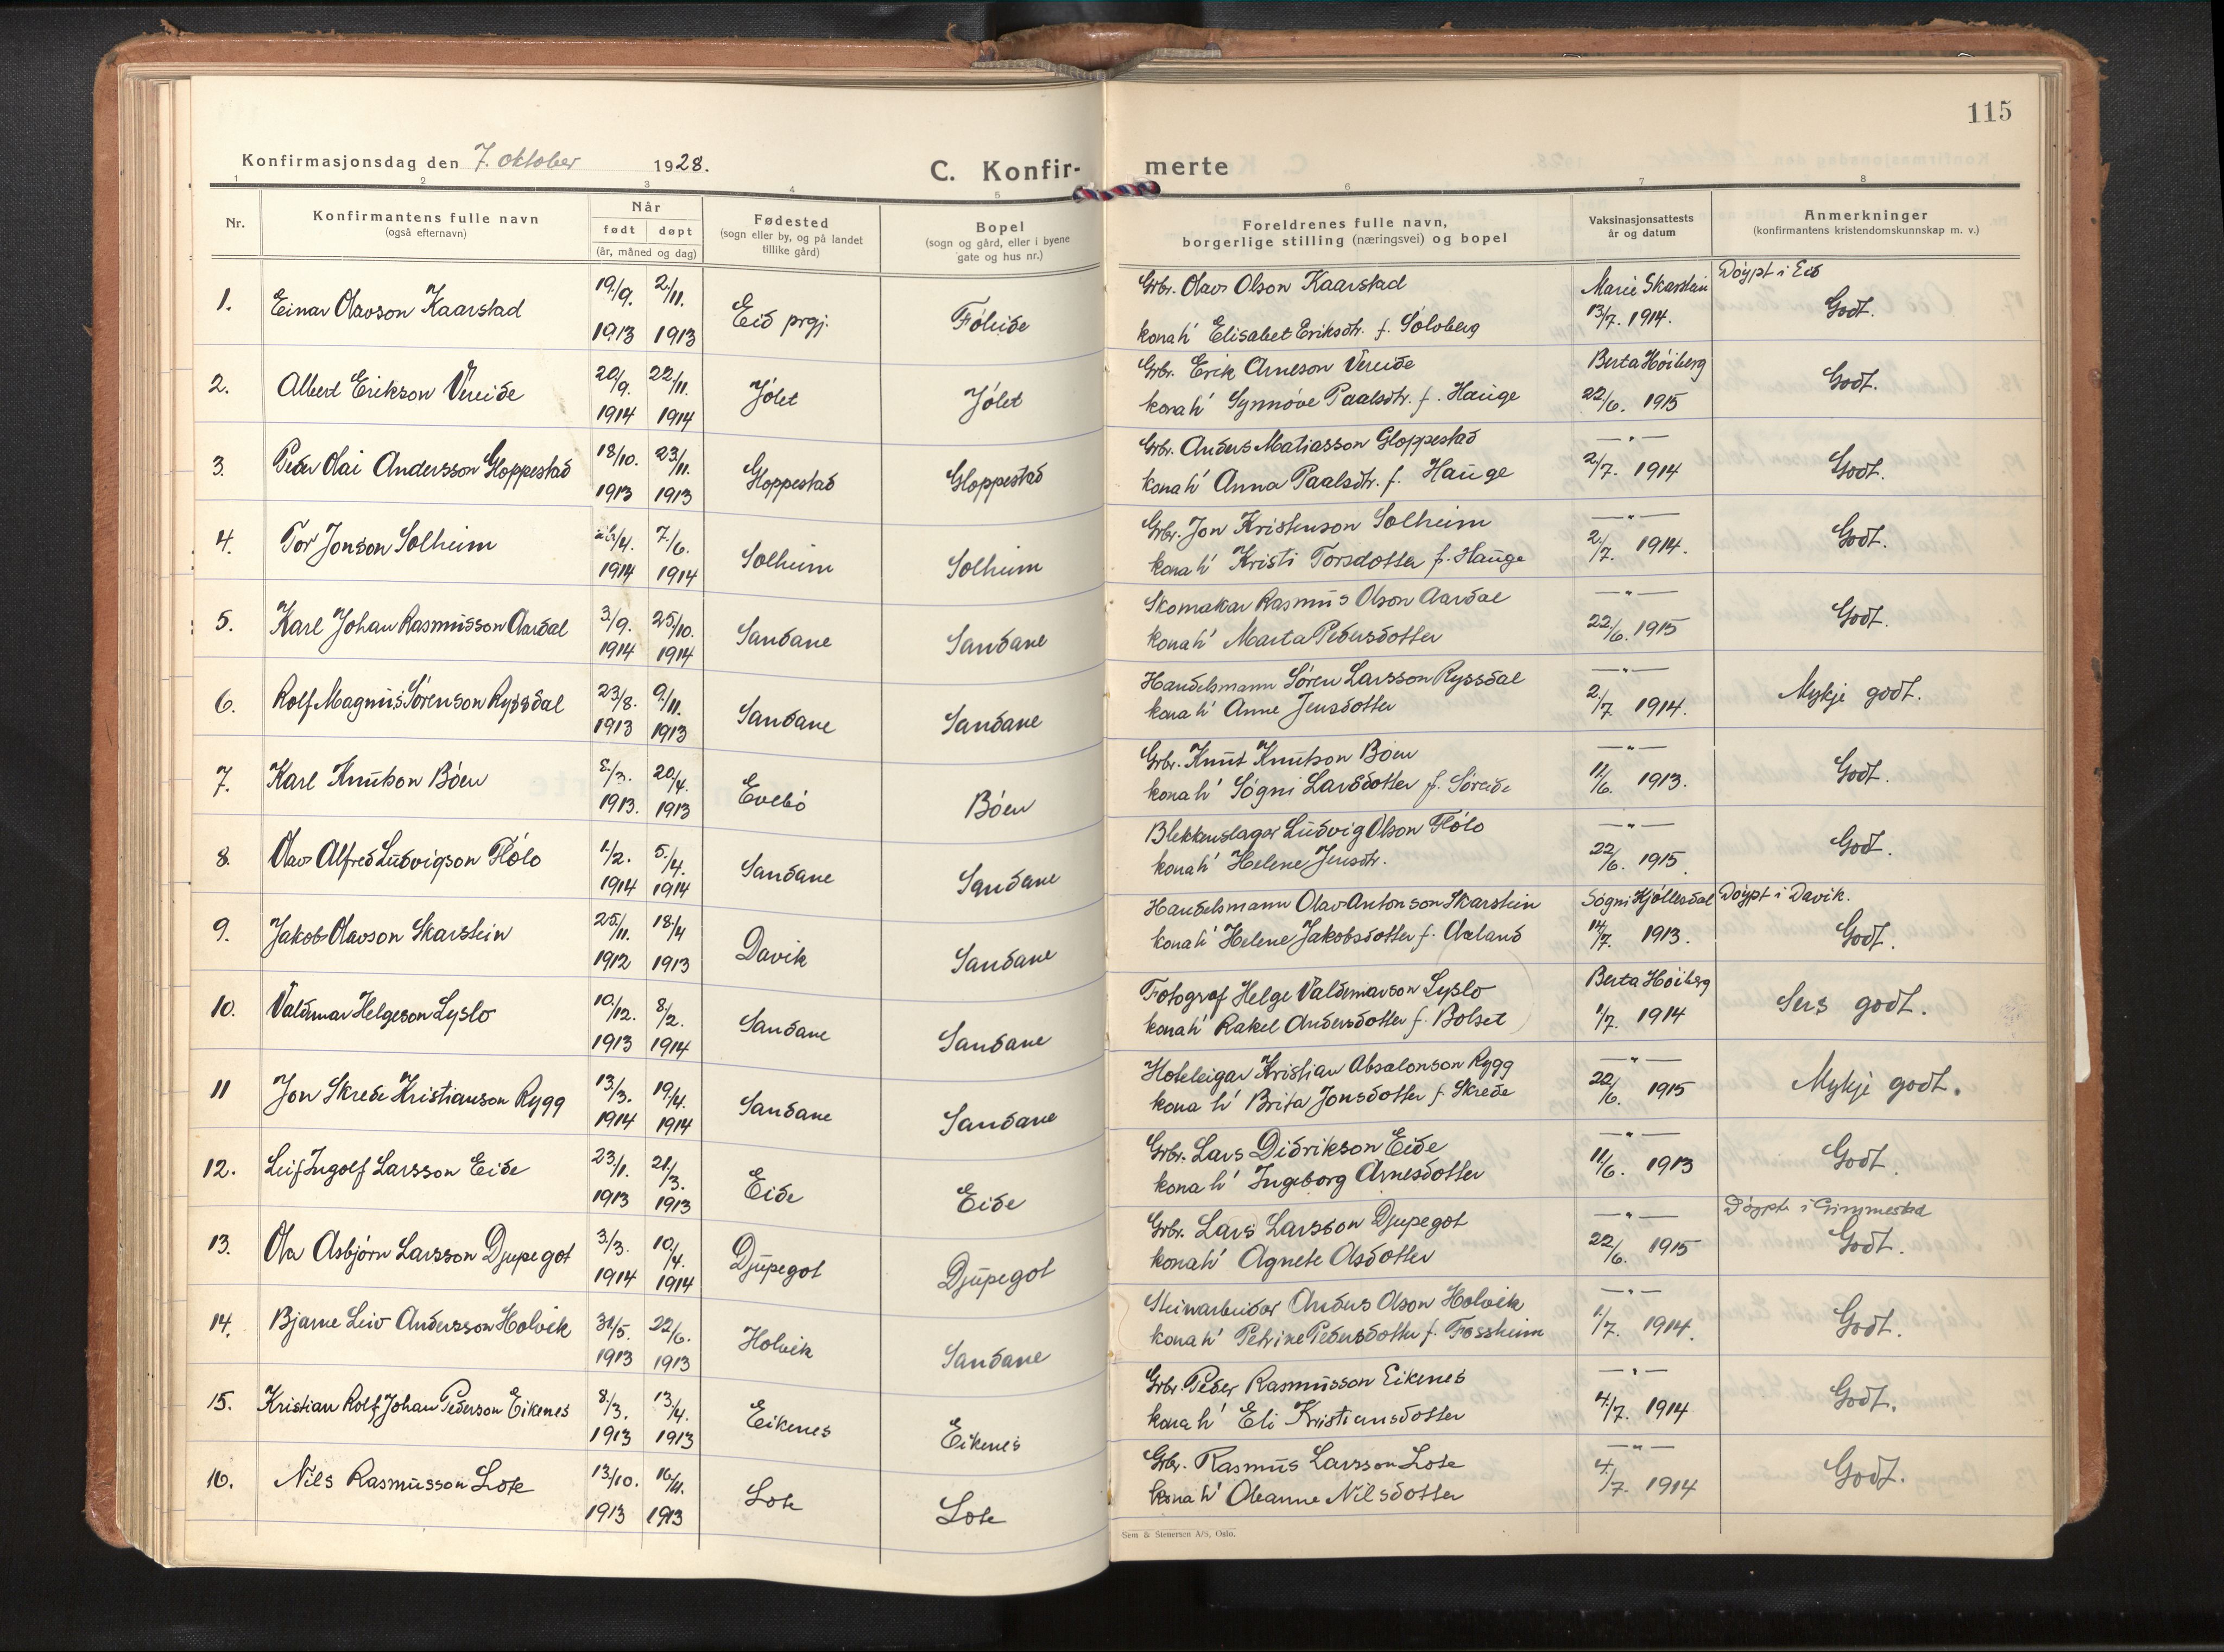 115
Konfirmasjonsdag den 7. oktober 1928.
C. Konfir-
merte
1 2 3 4 5 6 7 8
Nr.
Konfirmantens fulle navn
(også efternavn)
Når
født døpt
(år, måned og dag)
Fødested
(sogn eller by, og på landet
tillike gård)
Bopel
(sogn og gård, eller i byene
gate og hus nr.)
Foreldrenes fulle navn,
borgerlige stilling (næringsvei) og bopel
Vaksinasjonsattests
år og datum
Anmerkninger
(konfirmantens kristendomskunnskap m. v.)
1. Einar Olavson Kaarstad 19/9. 1913 2/11. 1913 Eid prgj. Føleide
Grbr. Olav Olson Kaarstad Marie Skarstein Døypt i Eid
kona h' Elisabet Eriksdtr. f. Solvberg 13/7. 1914. Godt.
2. Albert Erikson Vereide 20/9. 1914 22/11. 1914 Jølet Jølet
Grbr. Erik Arneson Vereide Berta Høiberg
kona h' Synnøve Paalsdtr. f. Hauge 22/6. 1915 Godt.
3. Peder Olai Andersson Gloppestad 18/10. 1913 23/11. 1913 Gloppestad Gloppestad
Grbr. Anders Matiasson Gloppestad — " —
kona h' Anna Paalsdtr. f. Hauge 2/7. 1914 Godt.
4. Tor Jonson Solheim /4. 1914 7/6. 1914 Solheim Solheim
Grbr. Jon Kristenson Solheim — " —
kona h' Kristi Torsdotter f. Hauge 2/7. 1914. Godt.
5. Karl Johan Rasmusson Aardal 3/9. 1914 25/10. 1914 Sandane Sandane
Skomakar Rasmus Olson Aardal — " —
kona h' Marta Pedersdotter 22/6. 1915 Godt.
6. Rolf Magnus Sørenson Ryssdal 23/8. 1913 9/11. 1913 Sandane Sandane
Handelsmann Søren Larsson Ryssdal — " —
kona h' Anne Jensdotter 2/7. 1914. Mykje godt.
7. Karl Knutson Bøen 8/3. 1913. 20/4. 1913 Evebø Bøen
Grbr. Knut Knutson Bøen — " —
kona h' Søgni Larsdotter f. Søreide 11/6. 1913. Godt.
8. Olav Alfred Ludvigson Flølo 1/2. 1914 5/4. 1914 Sandane Sandane
Blekkenslager Ludvig Olson Flølo — " —
kona h' Helene Jensdtr. 22/6. 1915. Godt.
9. Jakob Olavson Skarstein 25/11. 1912 18/4 1913 Davik Sandane
Handelsmann Olav Antonson Skarstein Søgni Hjøllesdal Døypt i Davik.
kona h' Helene Jakobsdotter f. Aaland 14/7. 1913. Godt.
10. Valdemar Helgeson Lyslo 10/12. 1913 8/2. 1914 Sandane Sandane
Fotograf Helge Valdemarson Lyslo Berta Høiberg
kona h' Rakel Andersdotter f. Bolset 1/7. 1914 Sers godt.
11 Jon Skrede Kristianson Rygg 13/3. 1914 19/4. 1914 Sandane Sandane
Hoteleigar Kristian Absalonson Rygg — " —
kona h' Brita Jonsdotter f. Skrede 22/6. 1915 Mykje godt.
12. Leif Ingolf Larsson Eide 23/1. 1913 21/3. 1913 Eide Eide
Grbr. Lars Didrikson Eide — " —
kona h' Ingeborg Arnesdotter 11/6. 1913 Godt.
13. Ola Asbjørn Larsson Djupegot 3/3. 1914 10/4. 1914 Djupegot Djupegot
Grbr. Lars Larsson Djupegot — " — Døypt i Gimmestad
kona h' Agnete Olsdotter 22/6. 1915 Godt.
14. Bjarne Leiv Andersson Holvik 31/5. 1913 22/6. 1913 Holvik Sandane
Steinarbeidar Anders Olson Holvik — " —
kona h' Petrine Pedersdotter f. Fossheim 1/7. 1914. Godt.
15. Kristian Rolf Johan Pederson Eikenes 8/3. 1913 13/4. 1913 Eikenes Eikenes
Grbr. Peder Rasmusson Eikenes — " —
kona h' Eli Kristiansdotter 4/7. 1914 Godt.
16. Nils Rasmusson Lote 13/10. 1913 16/11. 1913 Lote Lote
Grbr. Rasmus Larsson Lote — " —
kona h' Oleanne Nilsdotter 4/7. 1914 Godt.
Sem & Stenersen A/S, Oslo.